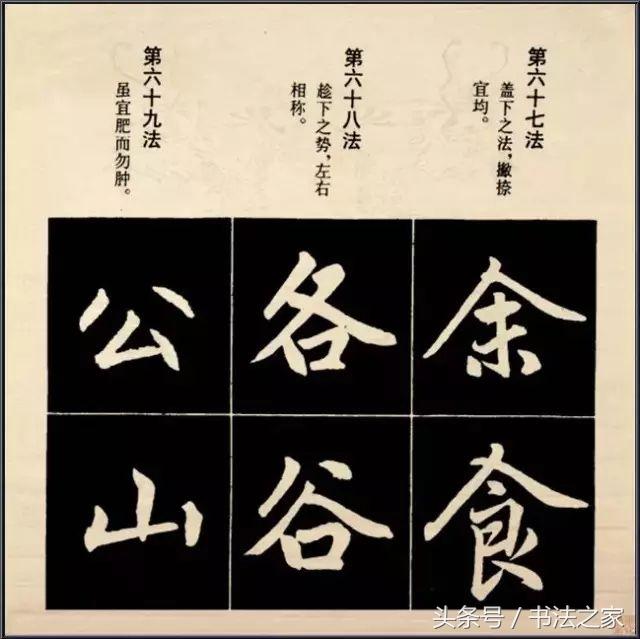 第六十七法
盖下之法，撇捺
宜均。
第六十八法
趁下之势，左右
相称。
第六十九法
虽宜肥而勿肿。
余
食
各
谷
公
山
头条号 / 书法之家